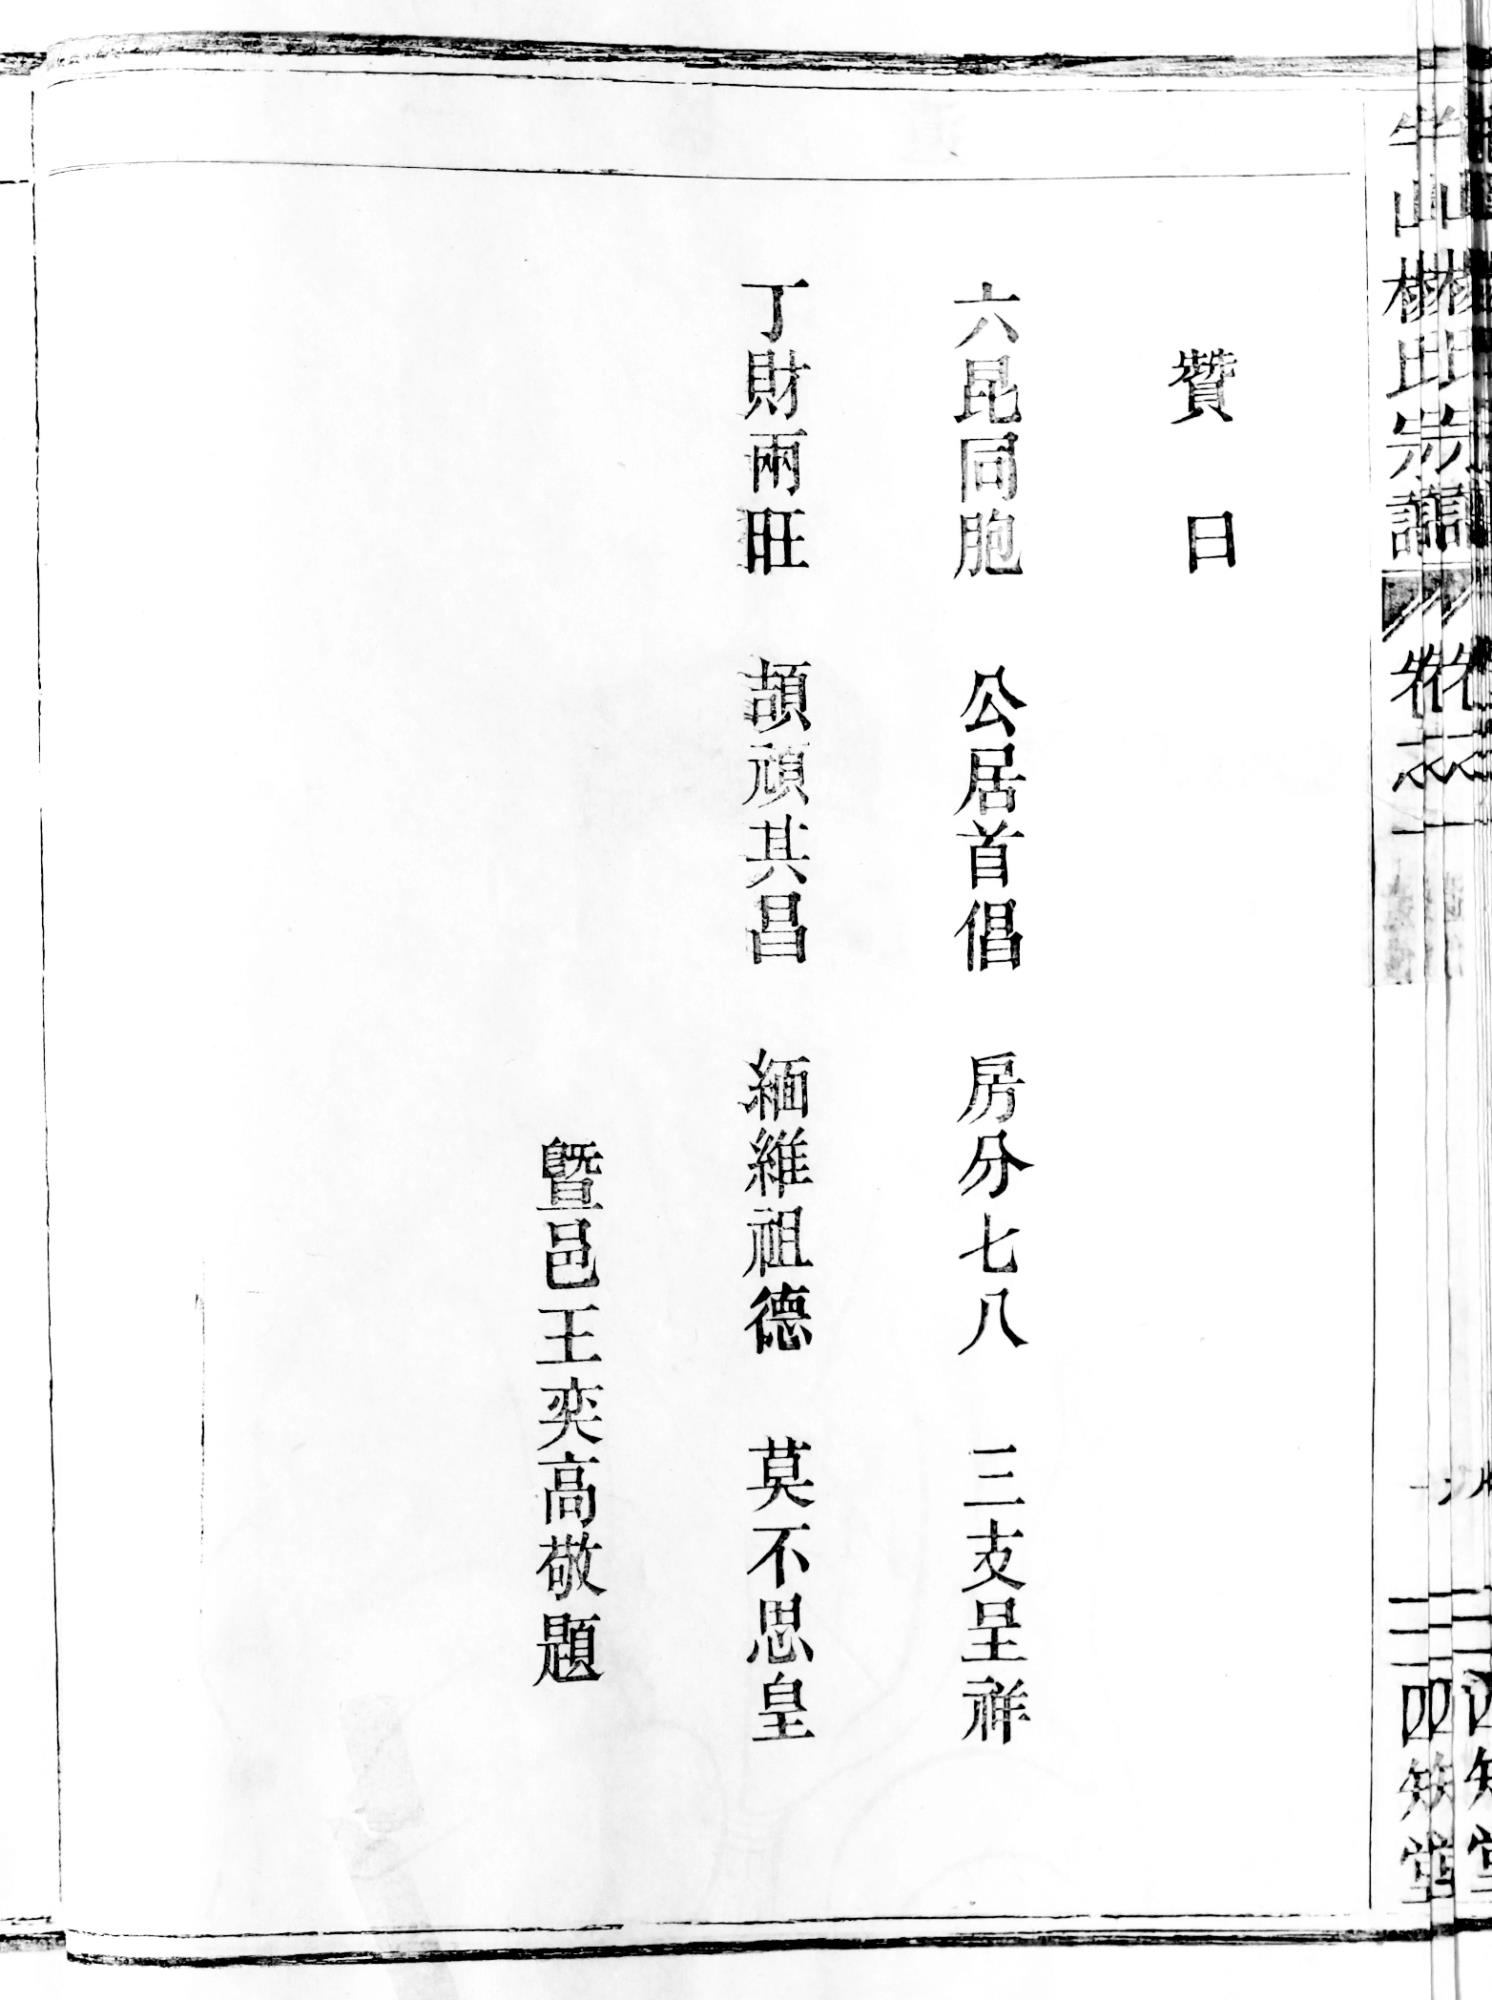 贊曰
六昆同胞 公居首倡 房分七八 三支呈祥
丁財兩旺 頡頏其昌 緬維祖德 莫不思皇
暨邑王奕高敬題
四知堂